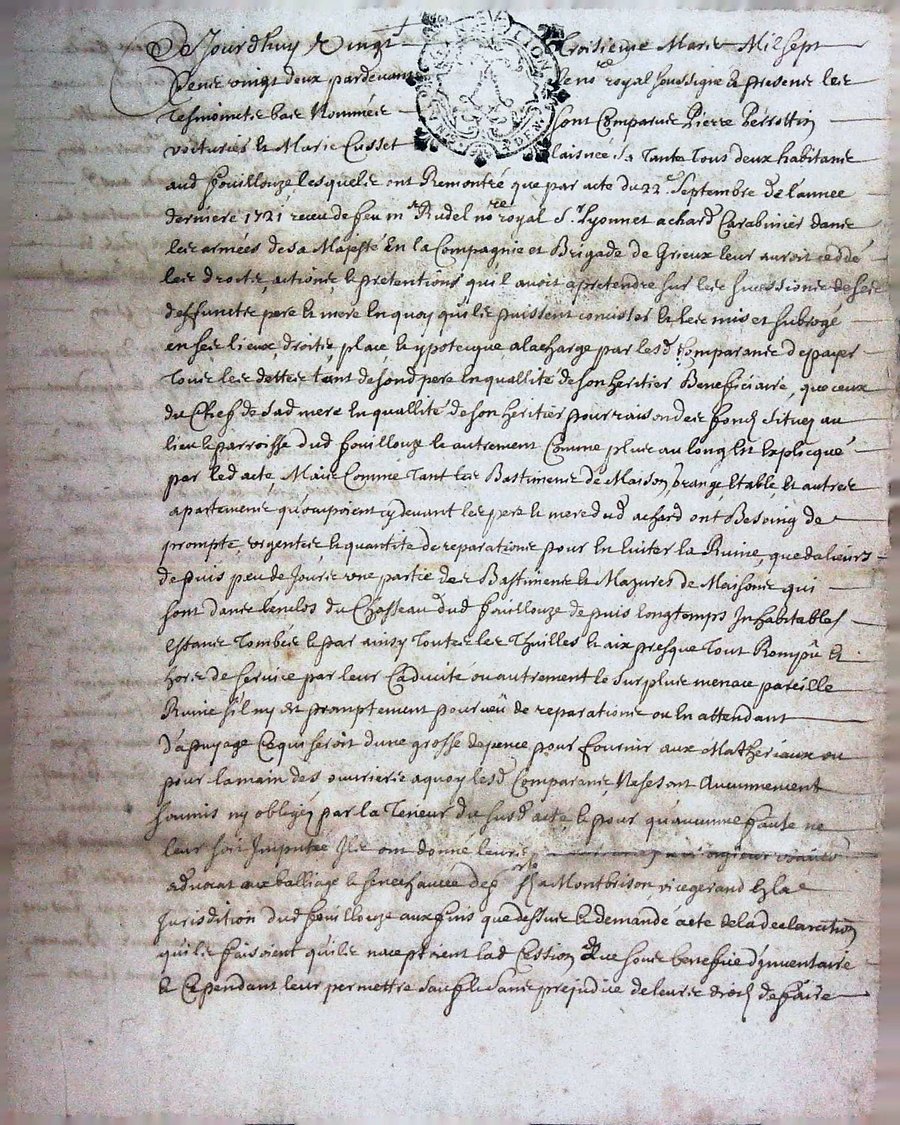 Ce Jourdhuy Vingt Troisieme Mars Mil Sept
Cens vingt deux pardevant le no.re royal soussigné & presens les
Tesmoints bas Nommés sont Comparus Pierre Perrottin
voiturier & Marie Cusset laisnée sa Tante Tous deux habitans
aud fouillouze lesquels ont Remontré que par acte du 22.e Septembre de l'année
derniere 1721 receu de feu m.e Rudel no.re royal S.r Lyonnet achard Carabinier dans
les armées de sa Majesté En la Compagnie et Brigade de Grieux leur auroit ceddé
les droits, actions, & pretentions qu'il avoit a pretendre sur les successions de ses
deffuncts pere & mere En quoy qu'ils puissent concister & les mis et subrogé
en ses lieux, droits, place, & ypotecque, a la charge par lesd Comparans de payer
Tous les dettes tant de sond pere En quallité de son heritier Beneficiaire, que ceux
du Chef de sad mere En quallité de son heritier pour raison des fonds situez au
lieu & parroisse dud fouillouze & autrement Comme plus au long Est Explicqué
par led acte, Mais Comme Tant les Bastimens de Maison, Grange Etable & autres
apartemens qu'occupoient cy devant les pere & mere dud achard ont Besoing de
prompte, urgentes & quantité de reparations pour En Eviter la Ruine, que dalieurs
depuis peu de Jours une partie des Bastimens & Mazures de Maisons qui
sont dans lenclos du Chasteau dud fouillouze depuis longtemps Inhabitables
Estans Tombés & par ainsy Toutes les Thuilles & aix presque Tout Rompû &
hors de service par leur Caducité ou autrement le surplus menace pareille
Ruine s'il ny Est promptement pourveü de reparations ou En attendant
D'apuyage Ce qui seroit dune grosse depence pour fournir aux Matheriaux ou
pour la main des ouvriers a quoy lesd Comparans Ne sesont Aucunement
soumis ny obligez par la Teneur du susd acte, & pour qu'aucunne faute ne
leur soit Imputée Ils ont donné leur
advocat aux balliage & senechaucée de Montbrison vicegerand En la
Jurisdition dud fouillouze aux fins que dessus & demandé acte de la declaration
qu'ils faisoient qu'ils naceptoient lad Cession que sous benefice d'inventaire
& Cependant leur permettre sauf & sans prejudice de leurs droits de faire